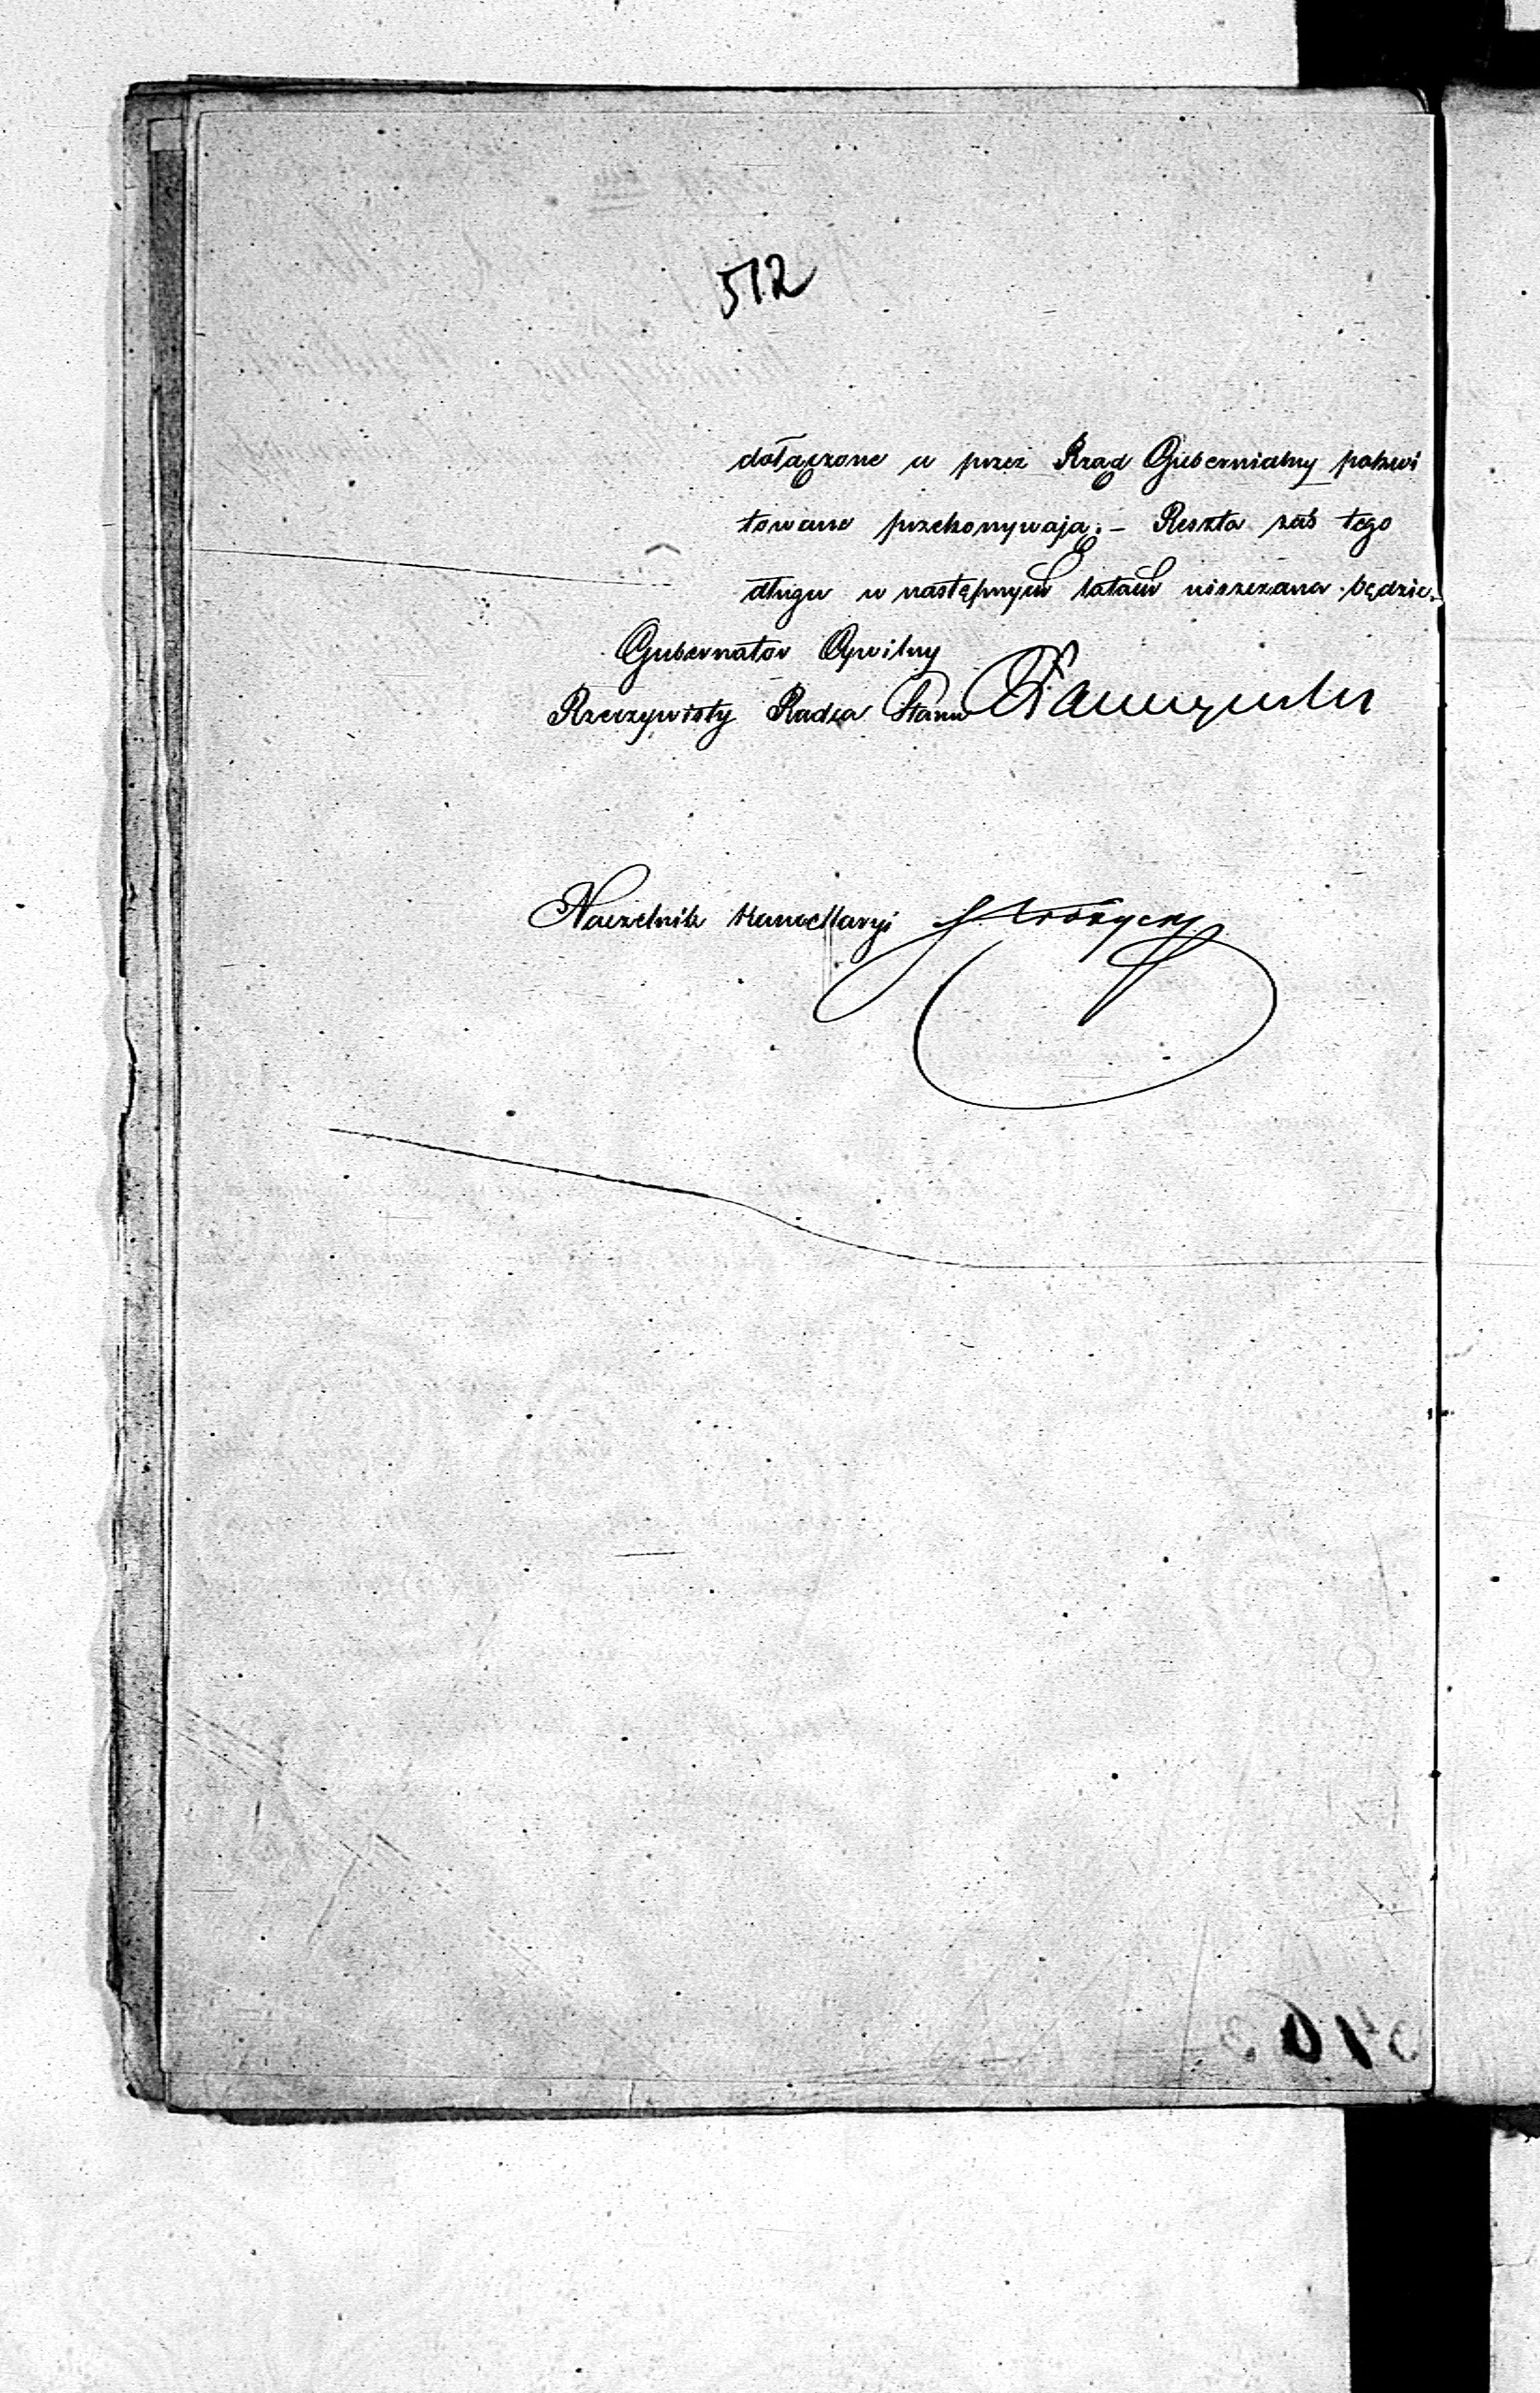 512
dołączone a przez Rząd Gubernialny pokwi
towane przekonywają. – Reszta zaś tego
długu w następnych latach uiszczana będzie.
Gubernator Cywilny
Rzeczywisty Radca Stanu
Naczelnik Kancellaryi